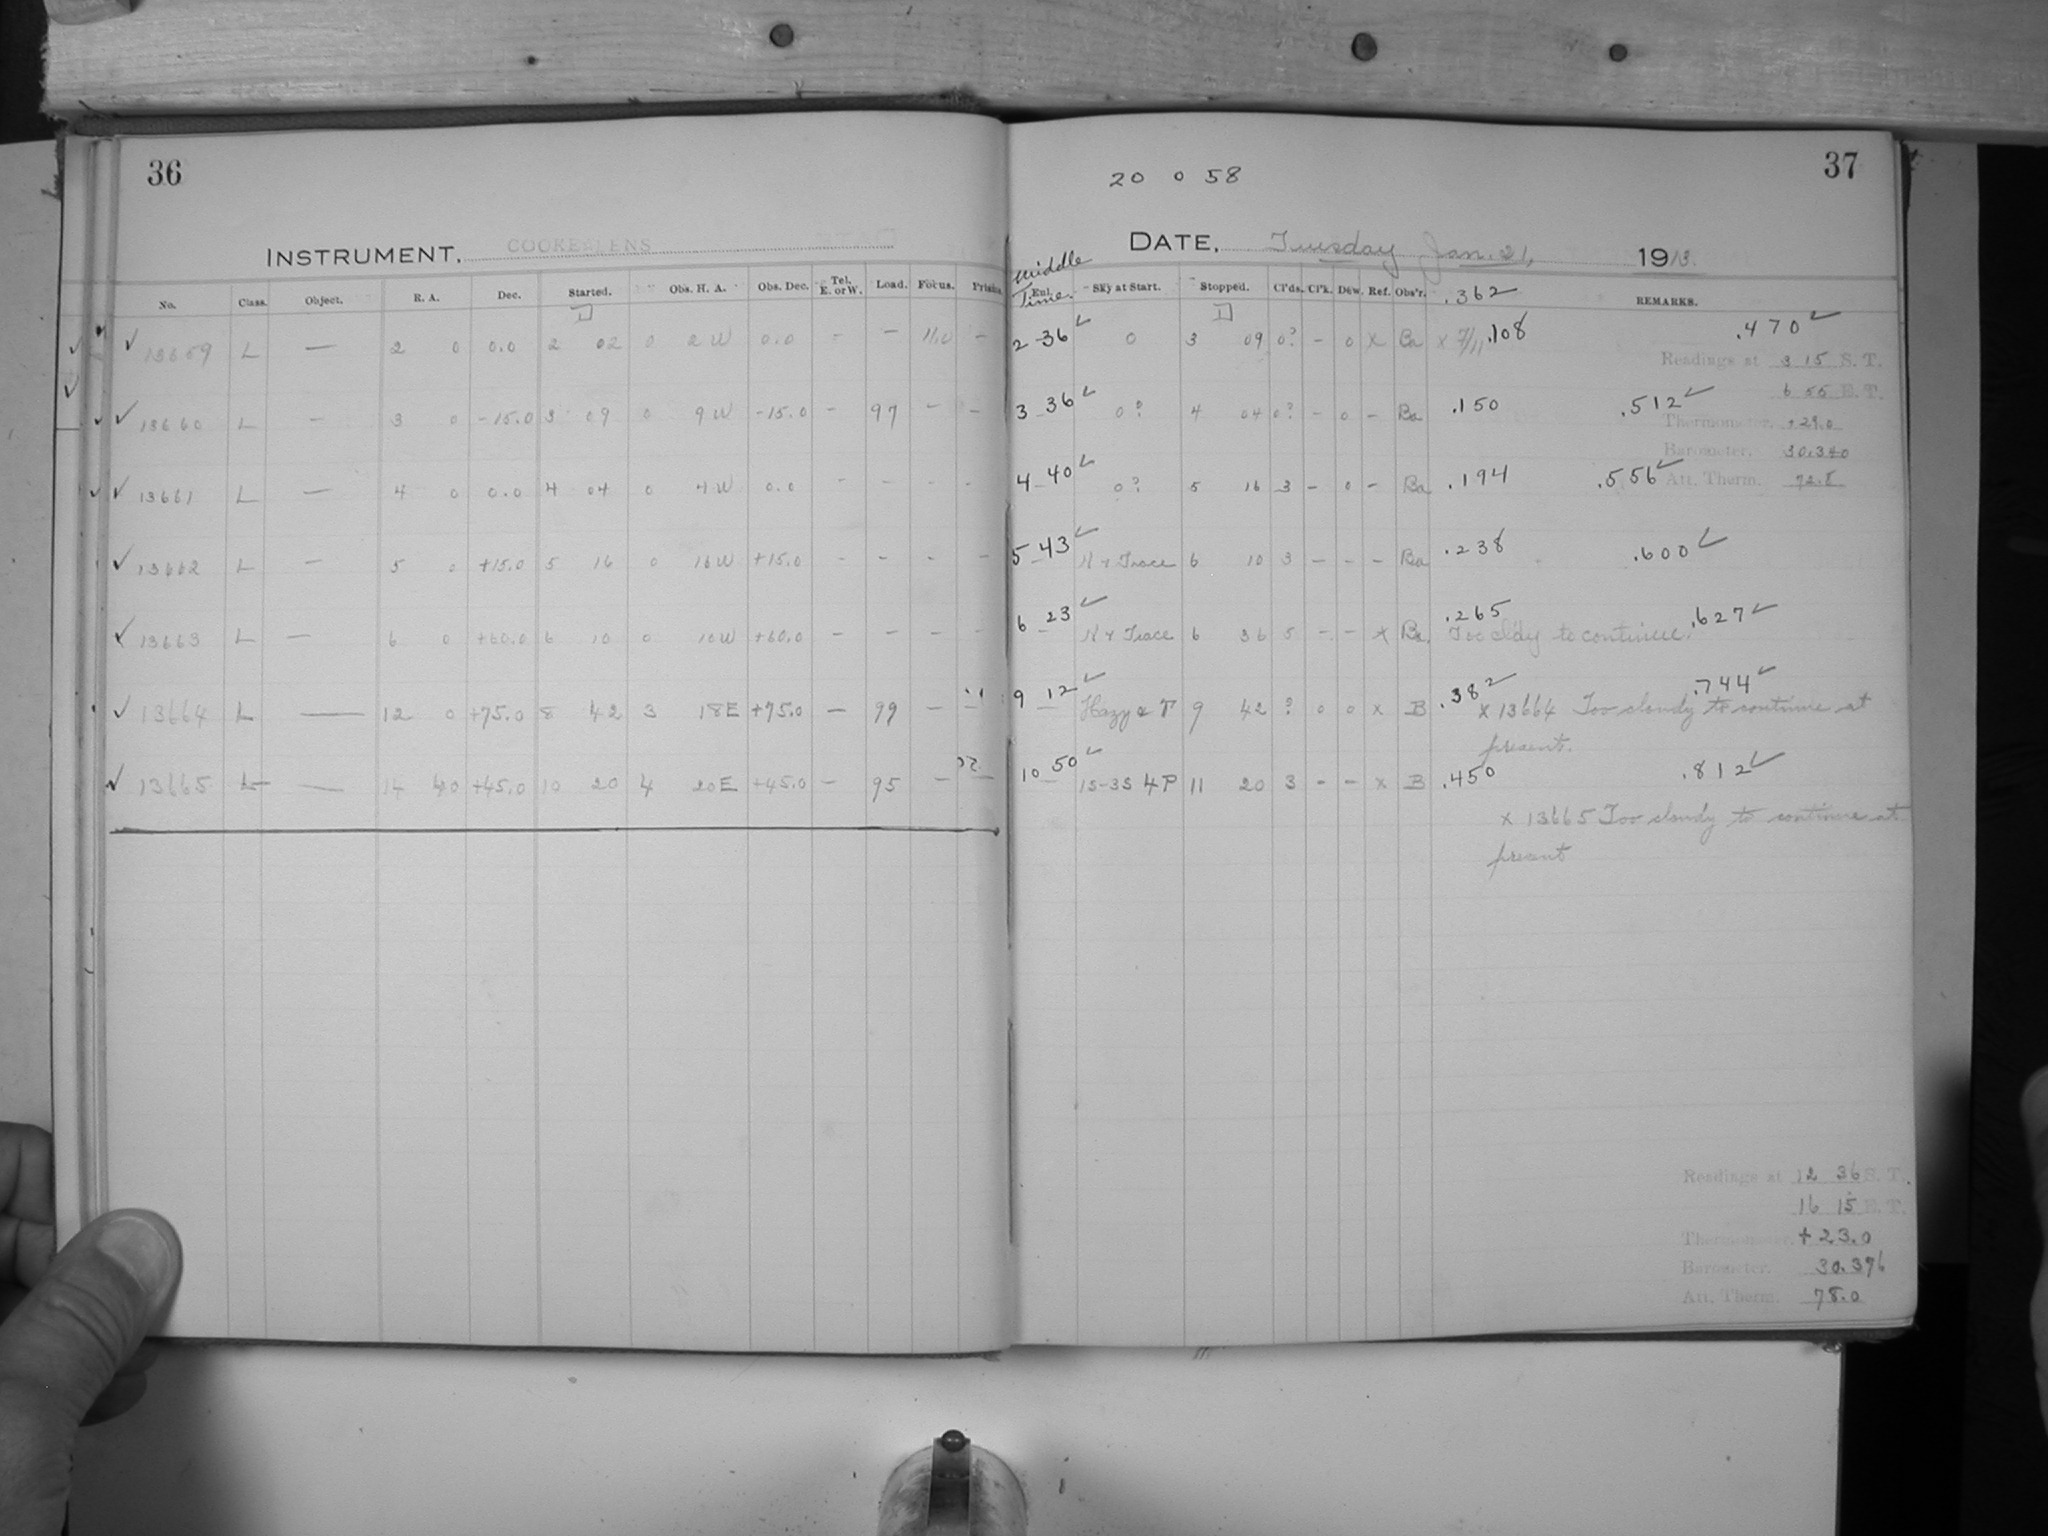 36
37
20 0 58
INSTRUMENT. COOKE LENS
DATE, Tuesday Jan. 21, 1913.
No. Class. Object. R. A. Dec. Started. Obs. H. A. Obs. Dec. Tel. E. or W. Load. Focus. Prisms. Middle Time. Sky at Start. Stopped. Cl'ds. Cl'k. Dew. Ref. Obs'r. .362 REMARKS.
✓ 13659 L — 2 0 0.0 2 02 0 2 W 0.0 - - 11.0 - 2 36 ✓ 0 3 09 0? - 0 x Ba x 7/11 .108 .470 ✓
Readings at 3 15 S. T.
6 55 E. T.
✓ 13660 L — 3 0 -15.0 3 09 0 9 W -15.0 - 97 - - 3 36 ✓ 0? 4 04 0? - 0 - Ba .150 .512 ✓
Thermometer. +29.0
Barometer. 30.340
✓ 13661 L — 4 0 0.0 4 04 0 4 W 0.0 - - - - 4 40 ✓ 0? 5 16 3 - 0 - Ba .194 .556 ✓ Att. Therm. 72.8
✓ 13662 L — 5 0 +15.0 5 16 0 16 W +15.0 - - - - 5 43 ✓ N + Trace 6 10 3 - - - Ba .238 .600 ✓
✓ 13663 L — 6 0 +60.0 6 10 0 10 W +60.0 - - - - 6 23 ✓ N + Trace 6 36 5 - - x Ba. .265 Too cldy to continue. .627 ✓
✓ 13664 L — 12 0 +75.0 8 42 3 18 E +75.0 - 99 - 9 12 ✓ Hazy & T 9 42 ? 0 0 x B .382 .744 ✓
x 13664 Too cloudy to continue at
present.
✓ 13665 L — 14 40 +45.0 10 20 4 20 E +45.0 - 95 - 10 50 ✓ 1S-3S 4P 11 20 3 - - x B .450 .812 ✓
x 13665 Too cloudy to continue at
present
Readings at 12 36 S. T.
16 15 E. T.
Thermometer. +23.0
Barometer. 30.396
Att. Therm. 78.0